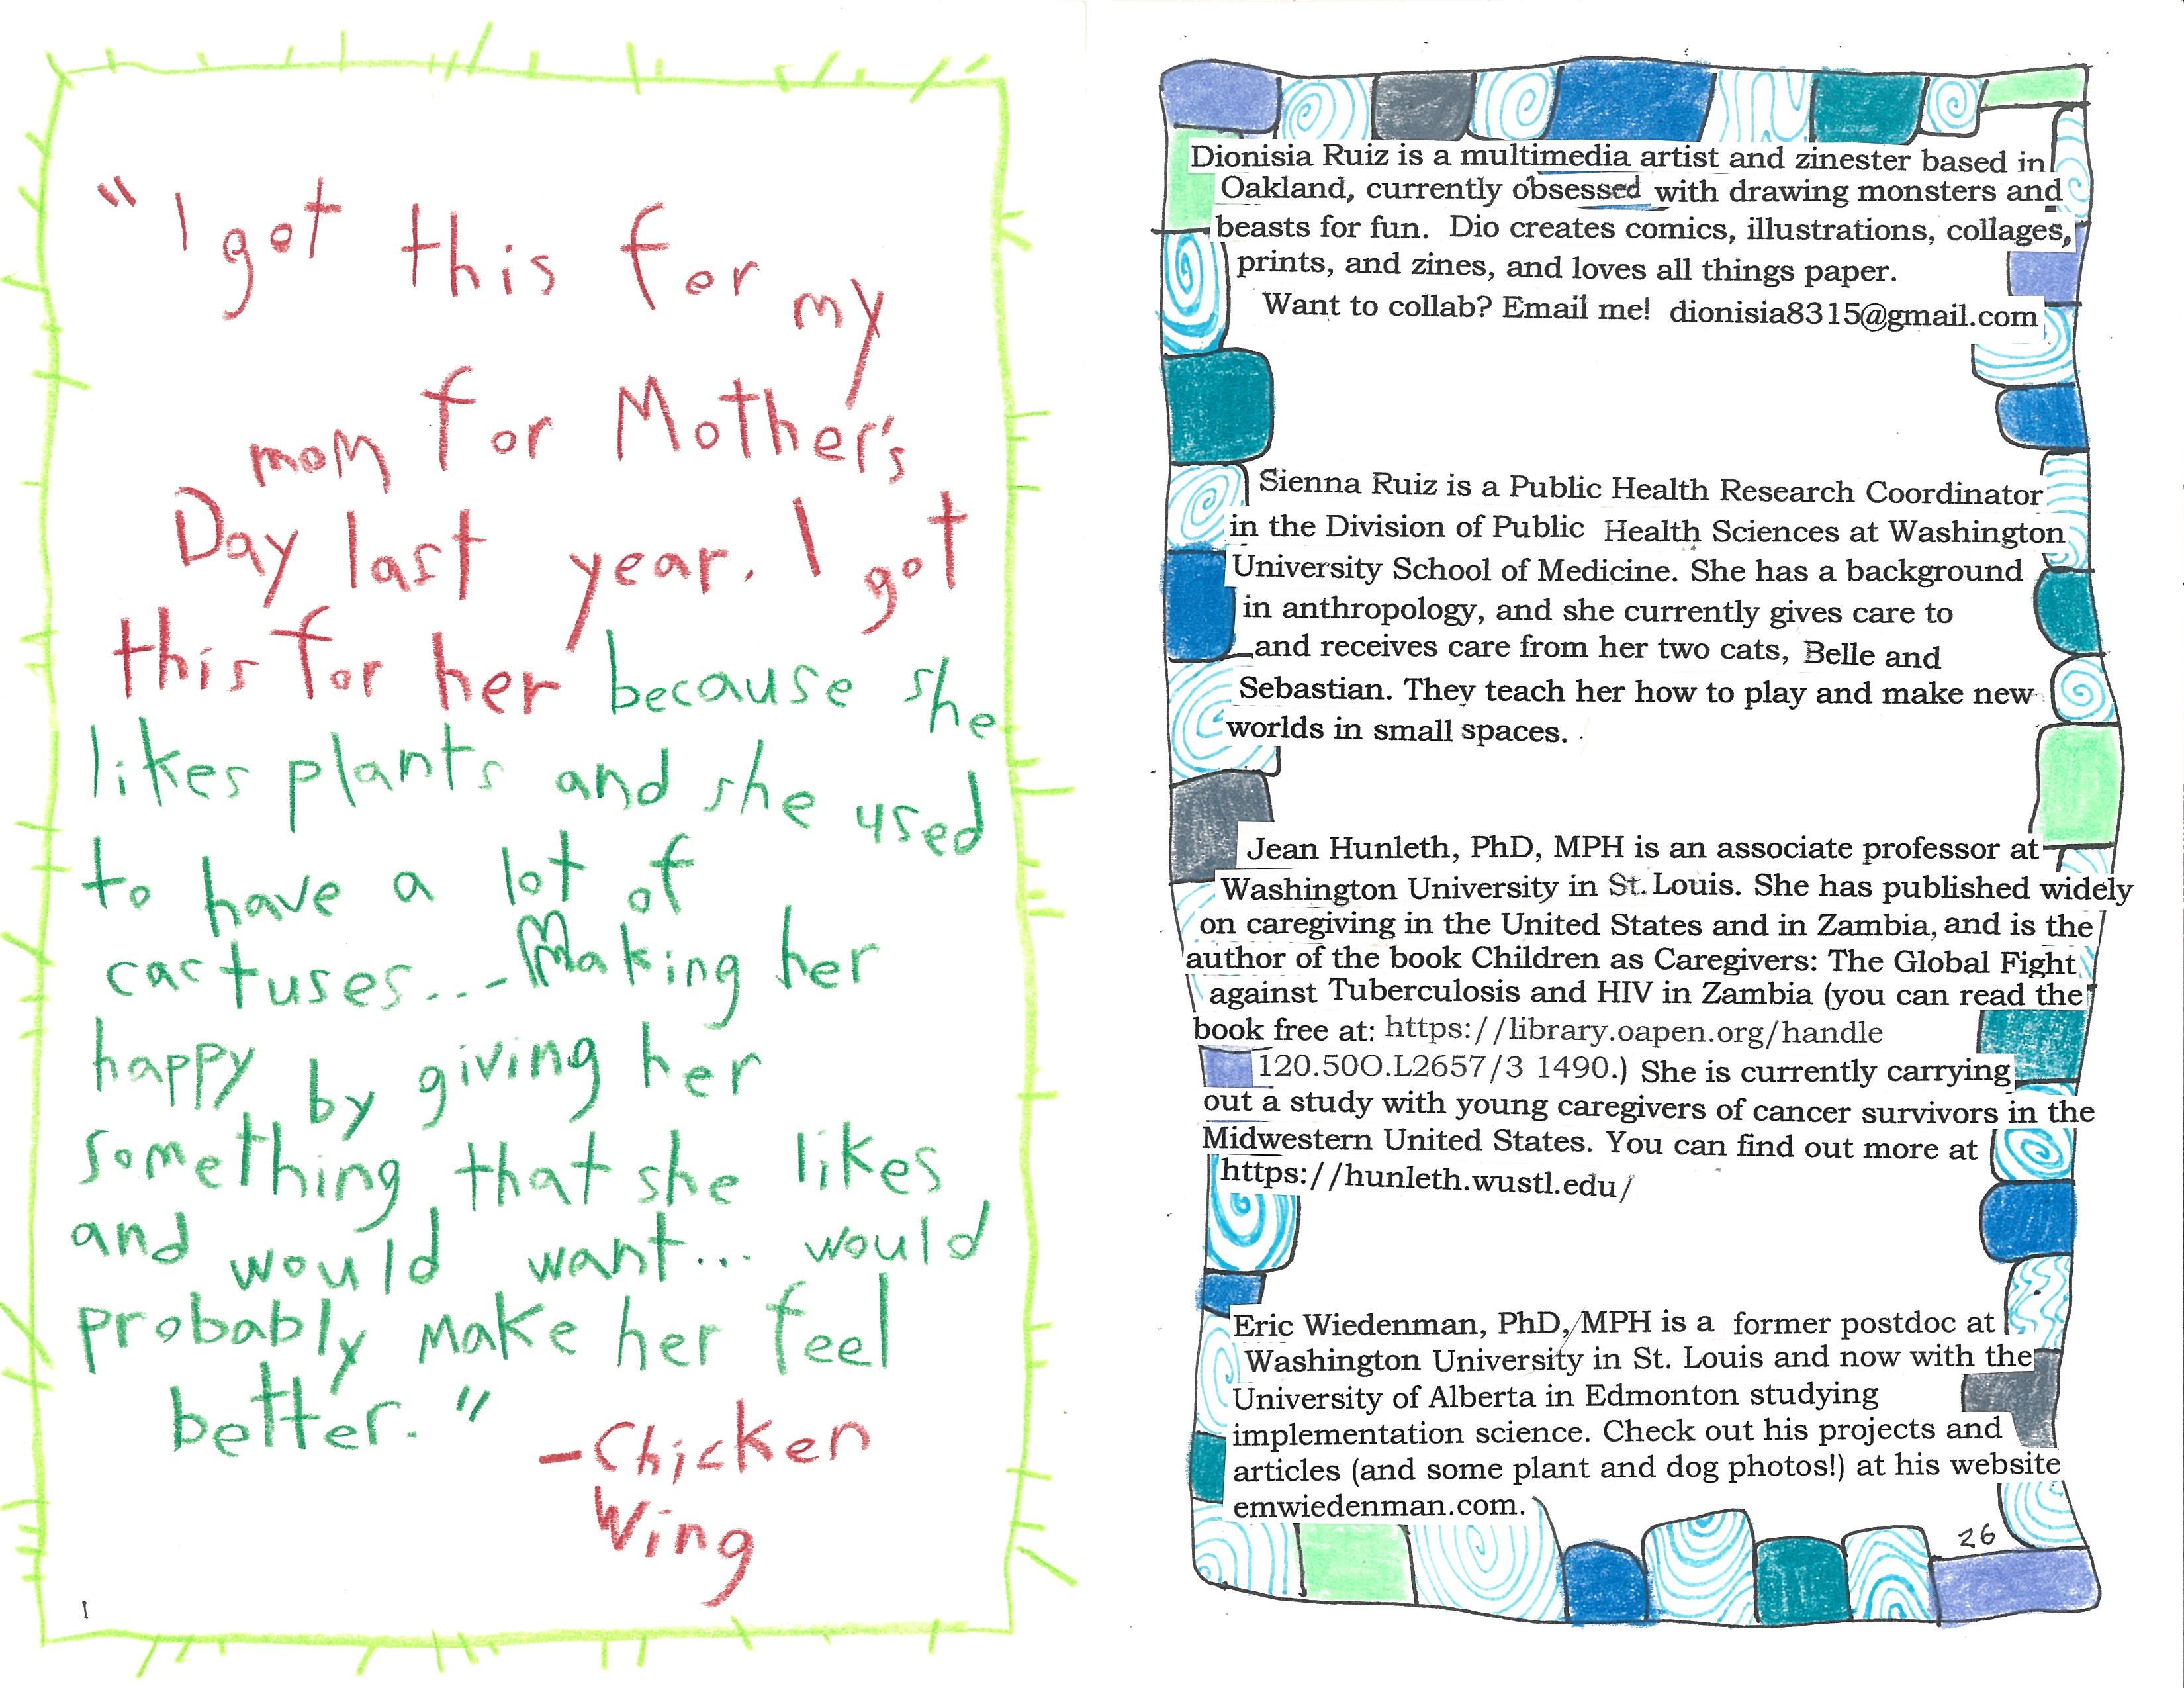 "I got this for my
mom for Mother's
Day last year. I got
this for her because she
likes plants and she used
to have a lot of
cactuses...-Making her
happy by giving her
something that she likes
and would want... would
probably make her feel
better."
-Chicken
Wing
1
Dionisia Ruiz is a multimedia artist and zinester based in
Oakland, currently obsessed with drawing monsters and
beasts for fun. Dio creates comics, illustrations, collages,
prints, and zines, and loves all things paper.
Want to collab? Email me! dionisia8315@gmail.com
Sienna Ruiz is a Public Health Research Coordinator
in the Division of Public Health Sciences at Washington
University School of Medicine. She has a background
in anthropology, and she currently gives care to
and receives care from her two cats, Belle and
Sebastian. They teach her how to play and make new
worlds in small spaces.
Jean Hunleth, PhD, MPH is an associate professor at
Washington University in St. Louis. She has published widely
on caregiving in the United States and in Zambia, and is the
author of the book Children as Caregivers: The Global Fight
against Tuberculosis and HIV in Zambia (you can read the
book free at: https://library.oapen.org/handle
120.50O.L2657/3 1490.) She is currently carrying
out a study with young caregivers of cancer survivors in the
Midwestern United States. You can find out more at
https://hunleth.wustl.edu/
Eric Wiedenman, PhD, MPH is a former postdoc at
Washington University in St. Louis and now with the
University of Alberta in Edmonton studying
implementation science. Check out his projects and
articles (and some plant and dog photos!) at his website
emwiedenman.com.
26